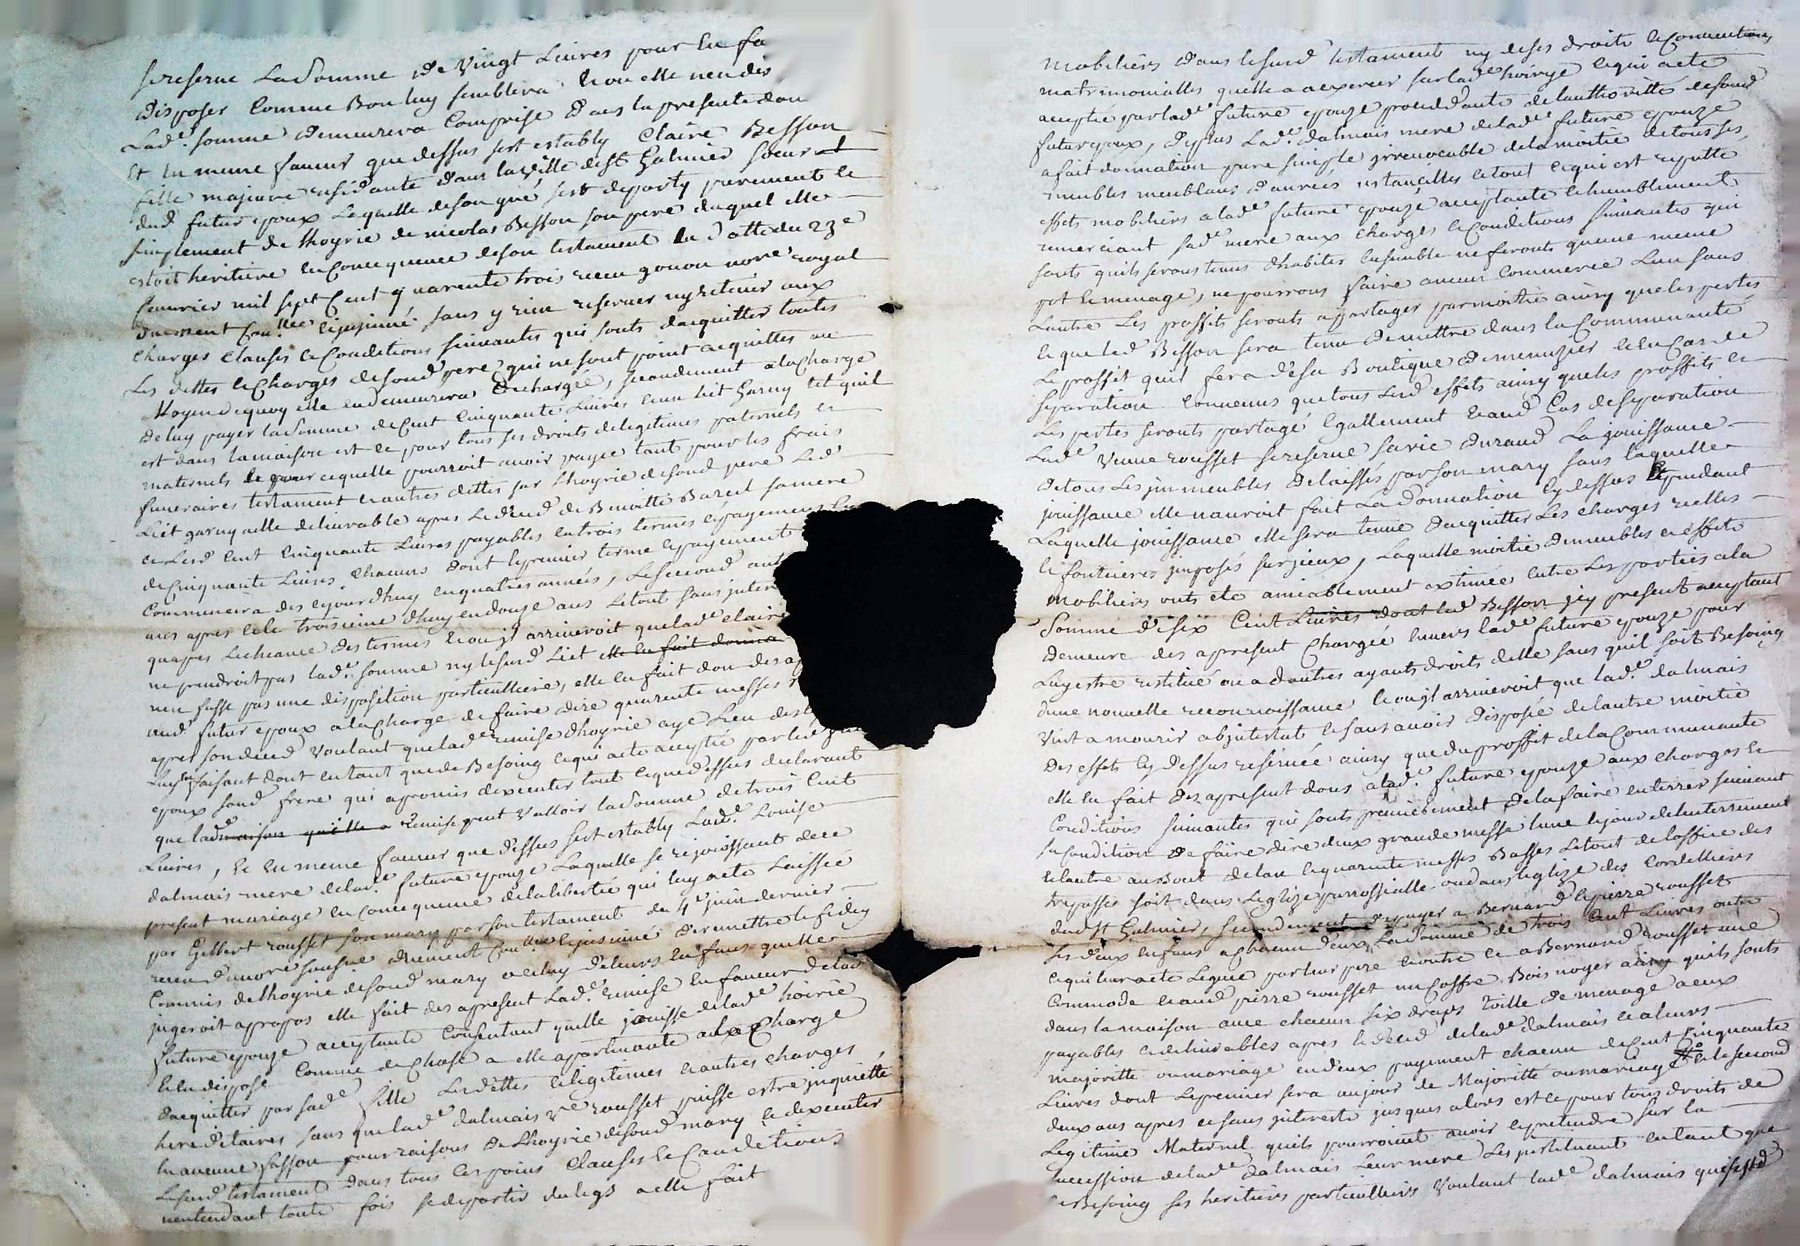 se reserve la somme de vingt livres pour en fa
disposer comme bon luy semblera
lad.e somme demeurera comprise dans la presente don
et en meme faveur que dessus sest estably Claire Besson
fille majeure residante dans la ville de st Galmier soeur
dud futur epoux Lequelle de son gré sest departy purement et
simplement de lhoyrie de nicolas Besson son pere duquel elle
estoit heritiere en consequence de son testament en datte du 23e
feuvrier mil sept cent quarente trois receu gonon nore royal
duement con.llée sans y rien reserver ny retenir aux
charges clauses et conditions suivantes qui sonts dacquitter toutes
Les dettes et charges desond pere qui ne sont point acquittés au
Moyen dequoy elle en demeurera dechargée, secondement a la charge
de luy payer la somme de cent cinquante Livres et un lit garny tel quil
est dans la maison et ce pour tous ses droits de legitimes paternels et
maternels pourroit avoir payée tant pour les frais
funeraires testament et autres dettes sur lhoyrie desond pere Led
Liet garny elle delivrable apres le deced de Benoitte Bareil sa mere
et Lesd cent cinquante Livres payables en trois termes et payements
de cinquante Livres chacun dont le premier terme et payement
commencera des cejourdhuy en quatres années, Le second
ans apres et le troisieme dhuy en douze ans le tout sans inter
quapres lecheance des termes et arriveroit que lad.e claire
ne prendroit pas lad.e somme ny lesurd Liet elle en fait donna
nen fisse pas une disposition particulliere, elle en fait don des a
aud futur epoux a la charge de faire dire quarente messes
apres son deced voulant que lad.e remise dhoyrie aye Lieu des
faisant dont en tant que de Besoing ce qui a ete accepté par led
epoux sond frere qui a promis dexecuter tout ce que dessus declarant
que lad.e maison quelle a remise peut valloir la somme de trois cent
Livres, et en meme faveur que dessus sest estably Lad.e Louise
dalmais mere de lad.e future epouze Laquelle se rejoissant de ce
present mariage en consequence de la libertée qui luy a ete laissée
par Gilbert rousset son mary par son testament du 4e juin dernier
duement con.llée de remettre le fidey
Commis de lhoyrie desond mary a celuy de leurs enfans quelle
jugeroit apropos elle fait des apresent Lad.e remise en faveur de lad
future epouze acceptante consentant quelle jouisse de lad.e hoirie
et en dispose comme de chose a elle apartenante a la charge
dacquitter par sad.e fille Les dettes et legitimes et autres charges
hereditaires sans que lad.e dalmais v.e rousset puisse estre inquiettée
en aucune fasson pour raisons de Lhoyrie desond mary et dexecuter
Lesurd testament dans tous ces poins clauses et conditions
nentendant toute fois se departir du legs a elle fait
mobiliers dans lesurd testament ny de ses droits et conventions
matrimonialles quelle a a exercer sur lad.e hoiryé ce qui a ete
accepté par lad.e future epouze procedante de lauthorittée desond
futur epoux, deplus Lad.e dalmais mere de lad.e future epouze
a fait donnation pure simple irrevocable de la moitié de tous ses
meubles meublans danrées ustancilles et tout ce qui est reputté
effets mobiliers a lad.e future epouze acceptante et humblement
remerciant sad.e mere aux charges et conditions suivantes qui
sonts quils serons tenus dhabiter ensemble ne feronts quune meme
pot et menage, ne pourrons faire aucun commerce Lun sans
Lautre Les proffits seronts a partager par moitié ainsy que les pertes
et que led Besson sera tenu de mettre dans la communauté
Le proffit quil fera de sa Boutique de menuzier et en cas de
separation convenus que tous lesd effets ainsy que les proffits et
Les pertes seronts partagé egallement et aud cas de separation
Lad.e veuve rousset se reserve sa vie durand La jouissance
de tous Les immeubles delaissés par son mary sans laquelle
jouissance elle nauroit fait La donnation cy dessus et pendant
Laquelle jouissance elle sera tenue dacquitter Les charges réelles
et foncieres imposés sur iceux, Laquelle moitié de meubles et effets
mobiliers onts ete amiablement extimée entre Les parties a la
Somme de six Cent Livres dont led Besson icy present acceptant
demeure des apresent chargée envers lad.e future epouze pour
Luy estre restitué ou a dautres ayants droits delle sans quil soit Besoing
dune nouvelle reconnoissance et ou il arriveroit que lad.e dalmais
vint a mourir abjntestat et sans avoir disposée de lautre moitié
des effets cy dessus reservée ainsy que du proffet de la communauté
elle en fait des apresent dons a lad.e future epouze aux charges et
conditions suivantes qui sonts premierement de la faire enterrer suivant
sa condition de faire dire deux grande messe lune le jour de lenterrement
et lautre au Bout de lan et quarente messes Basses le tout de loffice des
trepassés soit dans leglize parroissialle ou dans leglize des cordelliers
dud st Galmier, secondement de payer a Bernard et pierre rousset
ses deux enfans a chacun deux La somme de trois cent Livres outre
ce qui leur a ete legué par leur pere et outre ce a Bernard rousset une
commode et aud pierre rousset un coffre Bois noyer ainsy quils sonts
dans la maison avec chacun six draps toille de menage a eux
payables et delivrables apres le deced de lad.e dalmais et a leurs
majoritte ou mariage en deux payement chacun de cent cinquante
Livres dont le premier sera au jour de Majoritté ou mariage et le second
deux ans apres et sans interests jusques alors et ce pour tous droits de
Legitime Maternel quils pourroient avoir et pretendre sur la
succession de lad.e dalmais Leur mere Les jnstituant en tant que
de Besoing ses heritiers particulliers voulant lad.e dalmais